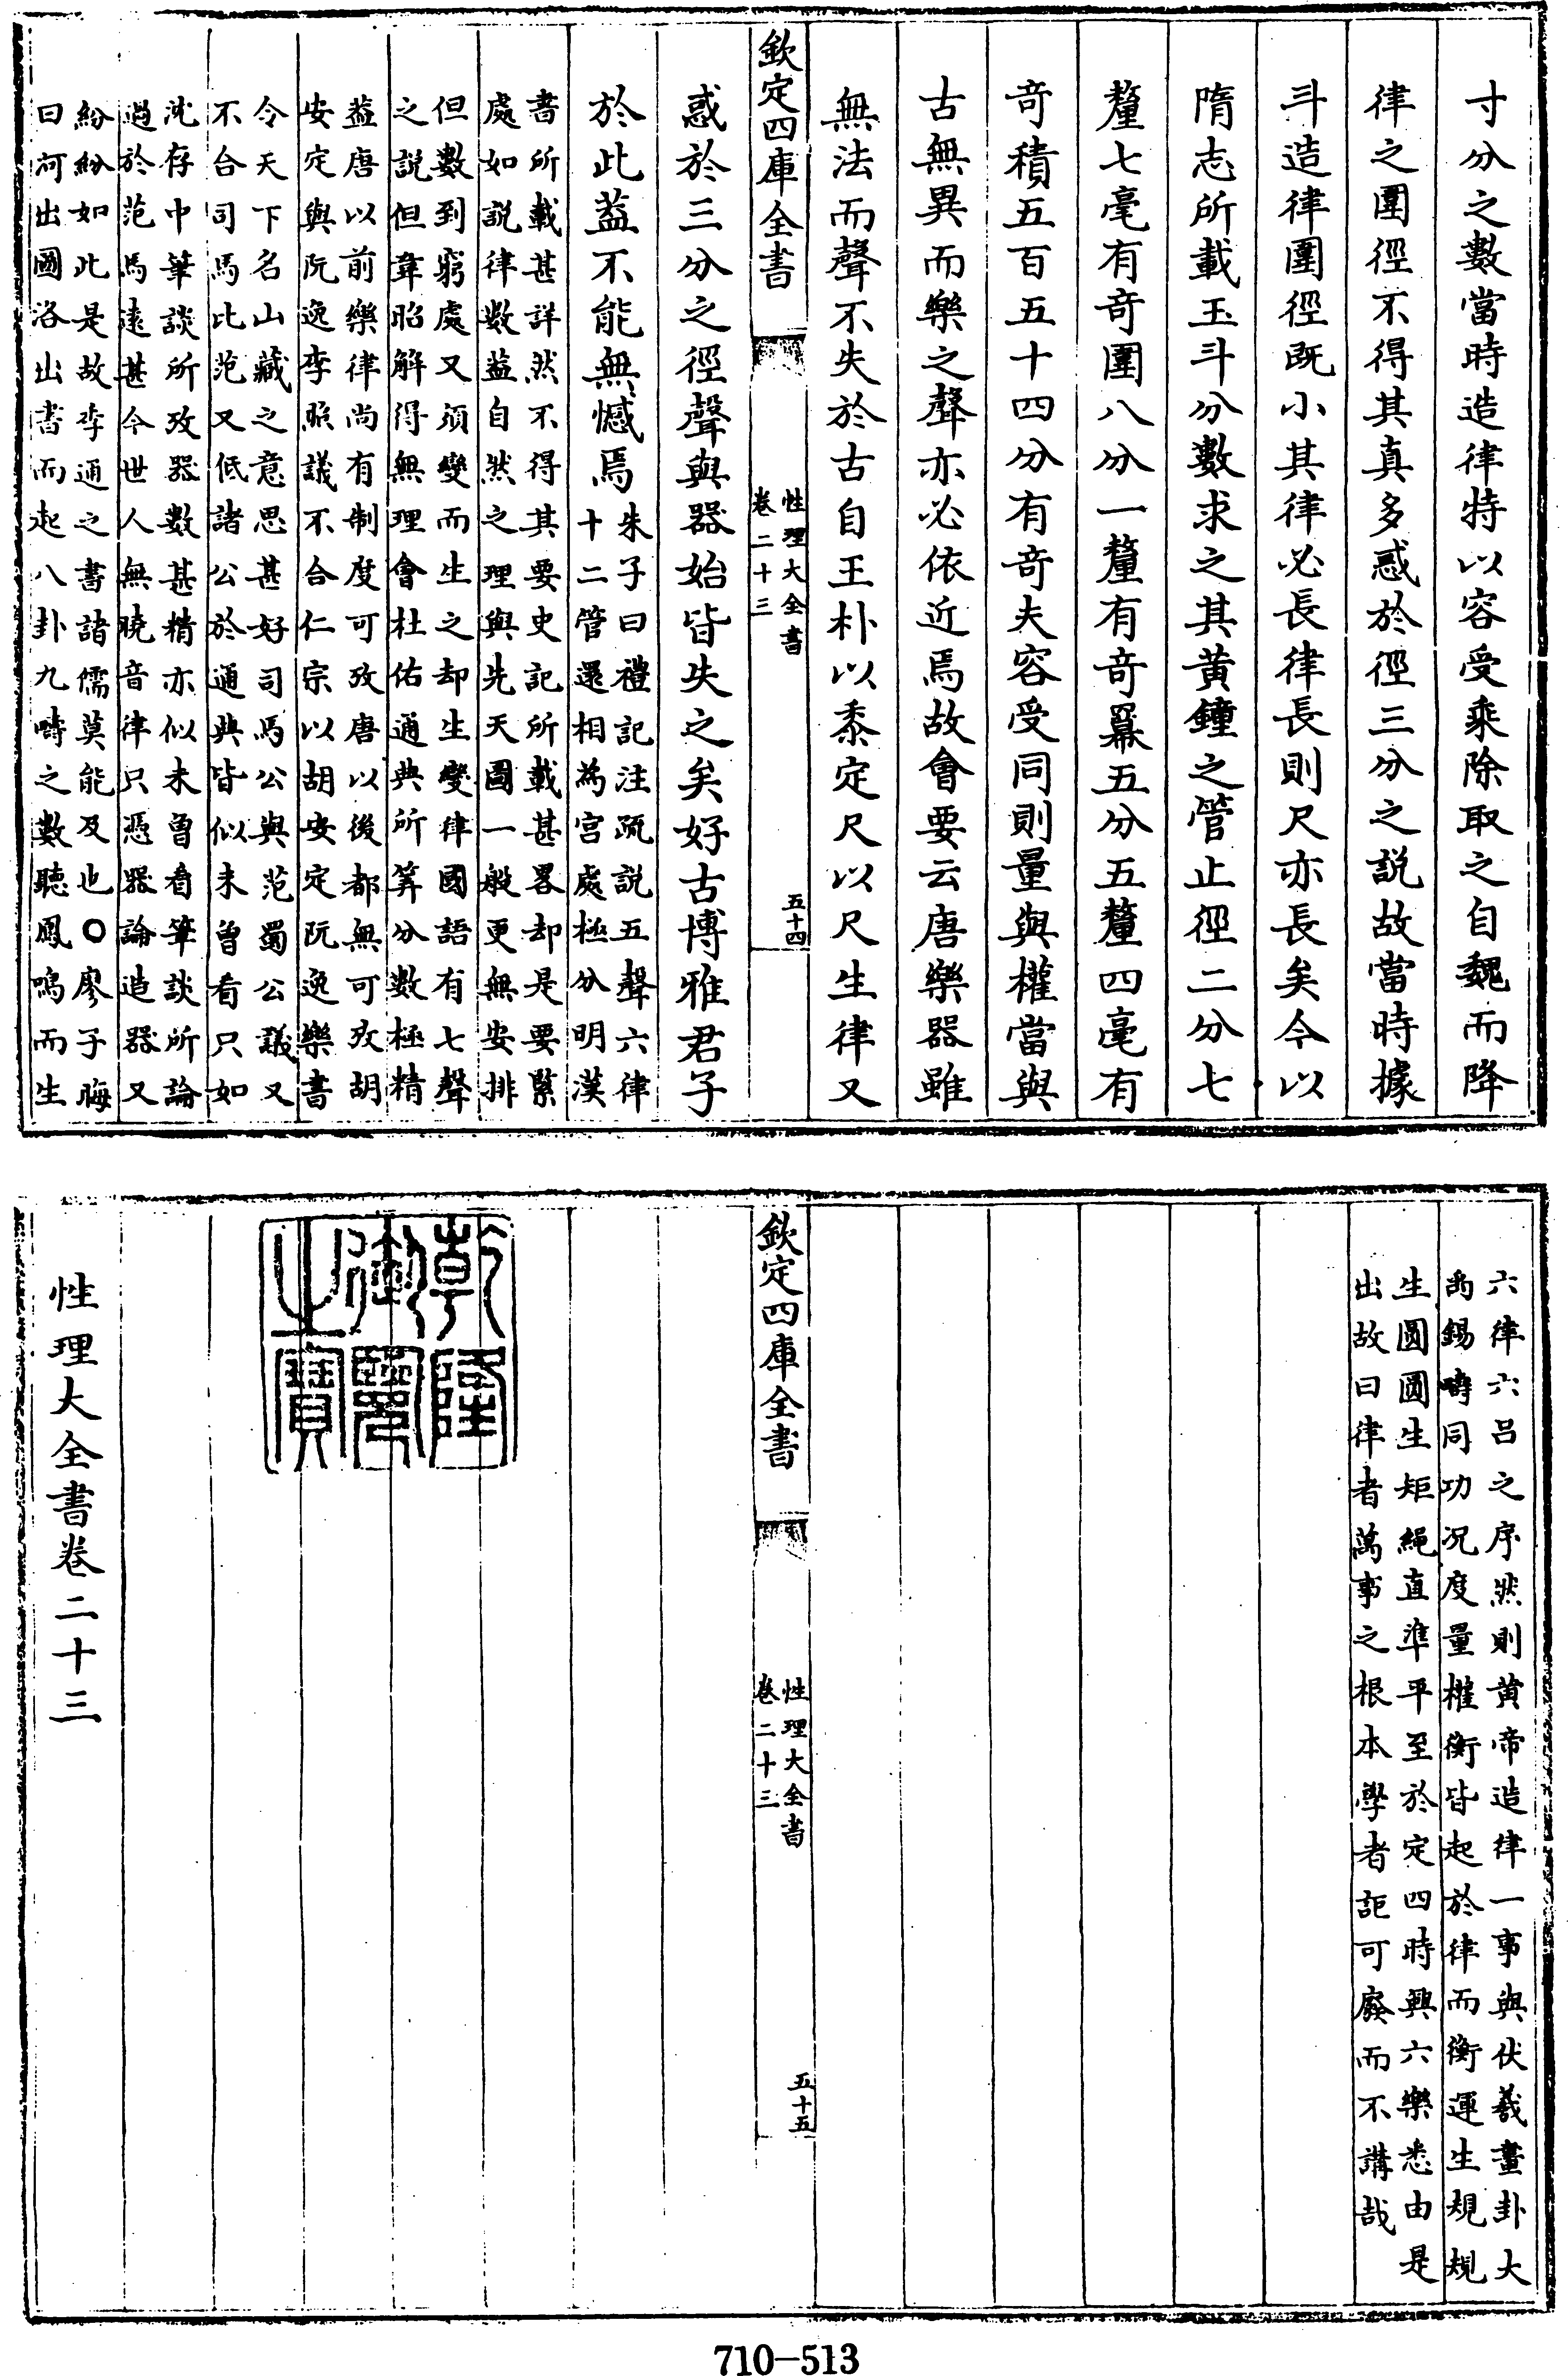 寸分之數當時造律特以容受乘除取之自魏而降
律之圍徑不得其真多惑於徑三分之説故當時據
斗造律圍徑既小其律必長律長則尺亦長矣今以
隋志所載玉斗分數求之其黄鐘之管止徑二分七
釐七毫有奇圍八分一釐有奇羃五分五釐四毫有
奇積五百五十四分有奇夫容受同則量與權當與
古無異而樂之聲亦必依近焉故會要云唐樂器雖
無法而聲不失於古自王朴以黍定尺以尺生律又
欽定四庫全書
性理大全書
卷二十三
五十四
惑於三分之徑聲與器始皆失之矣好古博雅君子
於此葢不能無憾焉
朱子曰禮記注疏説五聲六律
十二管還相為宫處極分明漢
書所載甚詳然不得其要史記所載甚畧却是要緊
處如説律數葢自然之理與先天圖一般更無安排
但數到窮處又須變而生之却生變律國語有七聲
之説但韋昭解得無理會杜佑通典所算分數極精
葢唐以前樂律尚有制度可攷唐以後都無可攷胡
安定與阮逸李照議不合仁宗以胡安定阮逸樂書
令天下名山藏之意思甚好司馬公與范蜀公議又
不合司馬比范又低諸公於通典皆似未曾看只如
沈存中筆談所攷器數甚精亦似未曾看筆談所論
過於范馬逺甚今世人無曉音律只憑器論造器又
紛紛如此是故李通之書諸儒莫能及也○廖子晦
曰河出圖洛出書而起八卦九疇之數聽鳳鳴而生
六律六吕之序然則黄帝造律一事與伏羲畫卦大
禹錫疇同功况度量權衡皆起於律而衡運生規規
生圓圓生矩繩直準平至於定四時興六樂悉由是
出故曰律者萬事之根本學者詎可廢而不講哉
欽定四庫全書
性理大全書
卷二十三
五十五
乾隆御覽之寶
性理大全書卷二十三
710-513